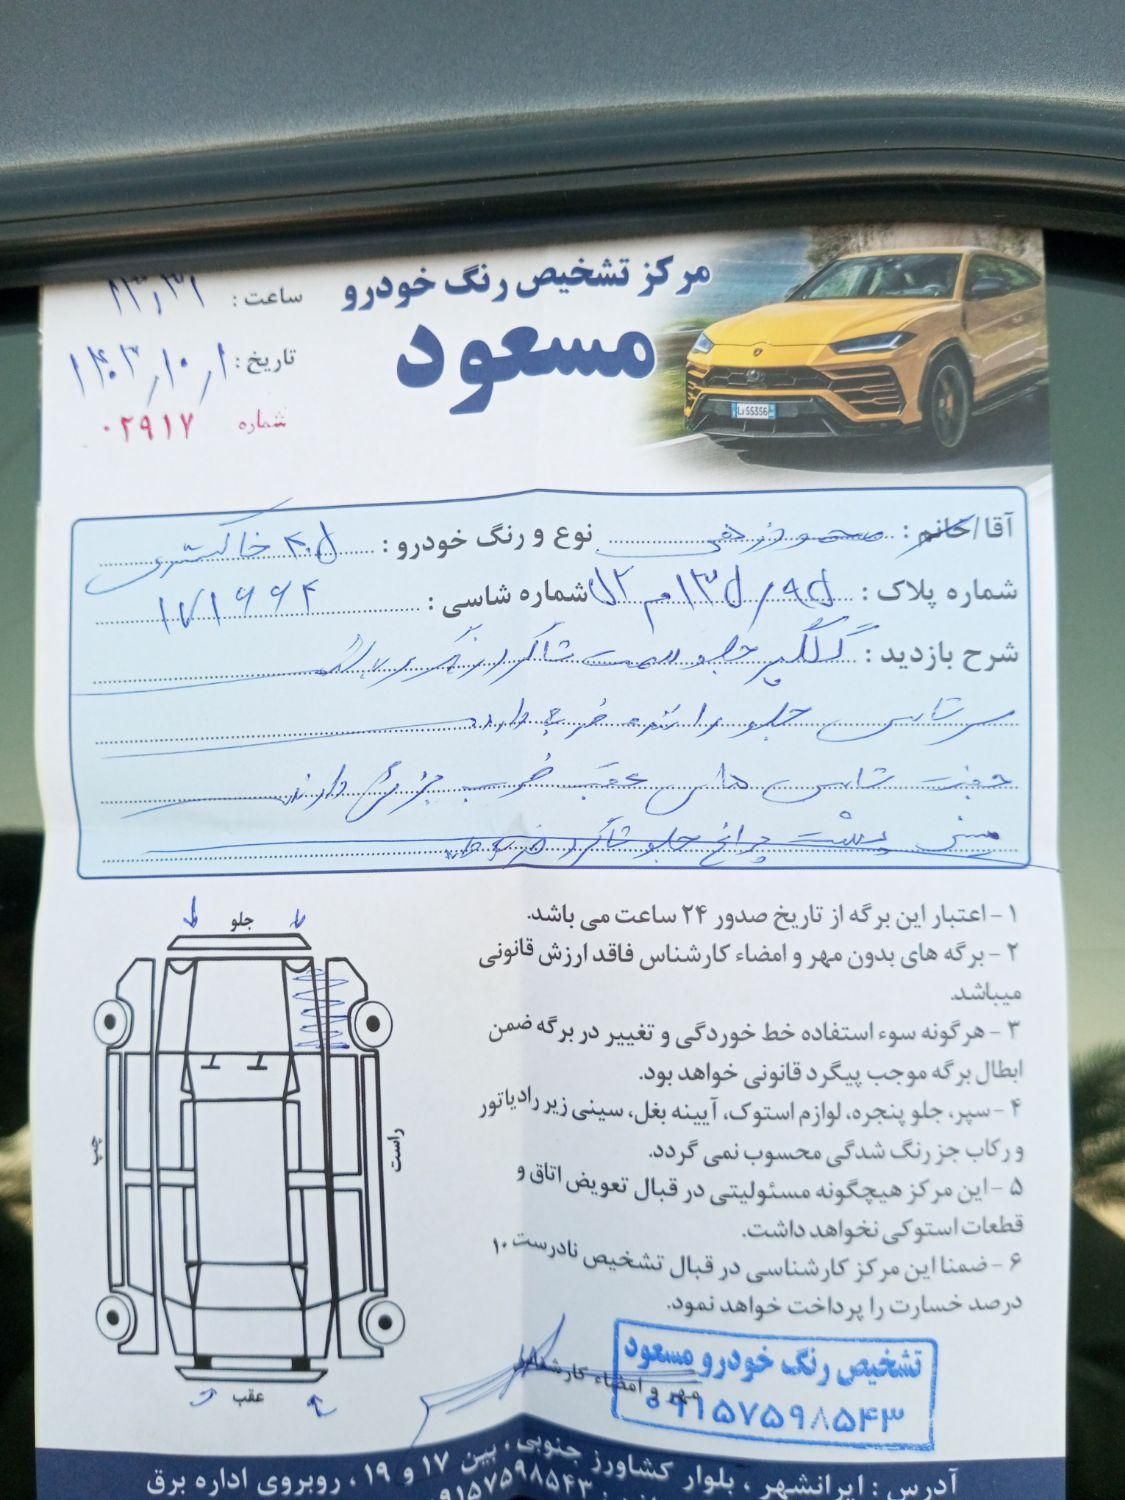 مرکز تشخیص رنگ خودرو
مسعود
ساعت : ۱۳,۳۱
تاریخ : ۱۴۰۳,۱۰,۱
شماره ۰۲۹۱۷
Li 55356
آقا/خانم :
نوع و رنگ خودرو : ۴۰۵ خاکستری
شماره پلاک : ۹۵/ ۱۳۵م۵۲
شماره شاسی : ۱۷۱۶۶۴
شرح بازدید : گلگیر جلو سمت شاگرد رنگ
سرشاسی جلو راننده ضربه دارد
جفت شاسی های عقب ضرب جزئی دارند
سینی پشت چراغ جلو شاگرد
۱ - اعتبار این برگه از تاریخ صدور ۲۴ ساعت می باشد.
۲ - برگه های بدون مهر و امضاء کارشناس فاقد ارزش قانونی
میباشد.
۳ - هرگونه سوء استفاده خط خوردگی و تغییر در برگه ضمن
ابطال برگه موجب پیگرد قانونی خواهد بود.
۴ - سپر، جلو پنجره، لوازم استوک، آیینه بغل، سینی زیر رادیاتور
و رکاب جز رنگ شدگی محسوب نمی گردد.
۵ - این مرکز هیچگونه مسئولیتی در قبال تعویض اتاق و
قطعات استوکی نخواهد داشت.
۶ - ضمنا این مرکز کارشناسی در قبال تشخیص نادرست ۱۰
درصد خسارت را پرداخت خواهد نمود.
جلو
چپ
راست
عقب
مهر و امضاء کارشناس
تشخیص رنگ خودرو مسعود
۰۹۱۵۷۵۹۸۵۴۳
آدرس : ایرانشهر ، بلوار کشاورز جنوبی ، بین ۱۷ و ۱۹ ، روبروی اداره برق
۰۹۱۵۷۵۹۸۵۴۳